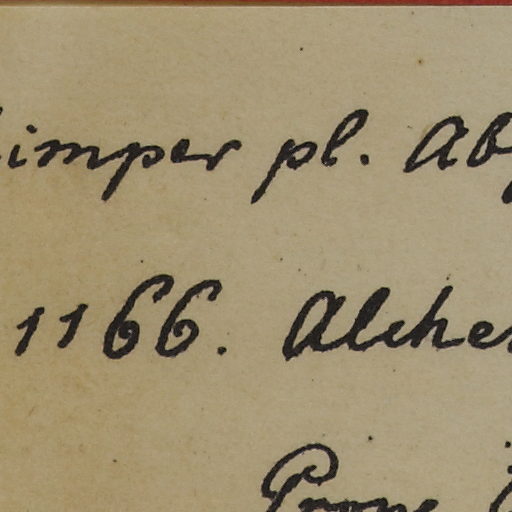 imper pl. Ab
1166. Alche
Prope